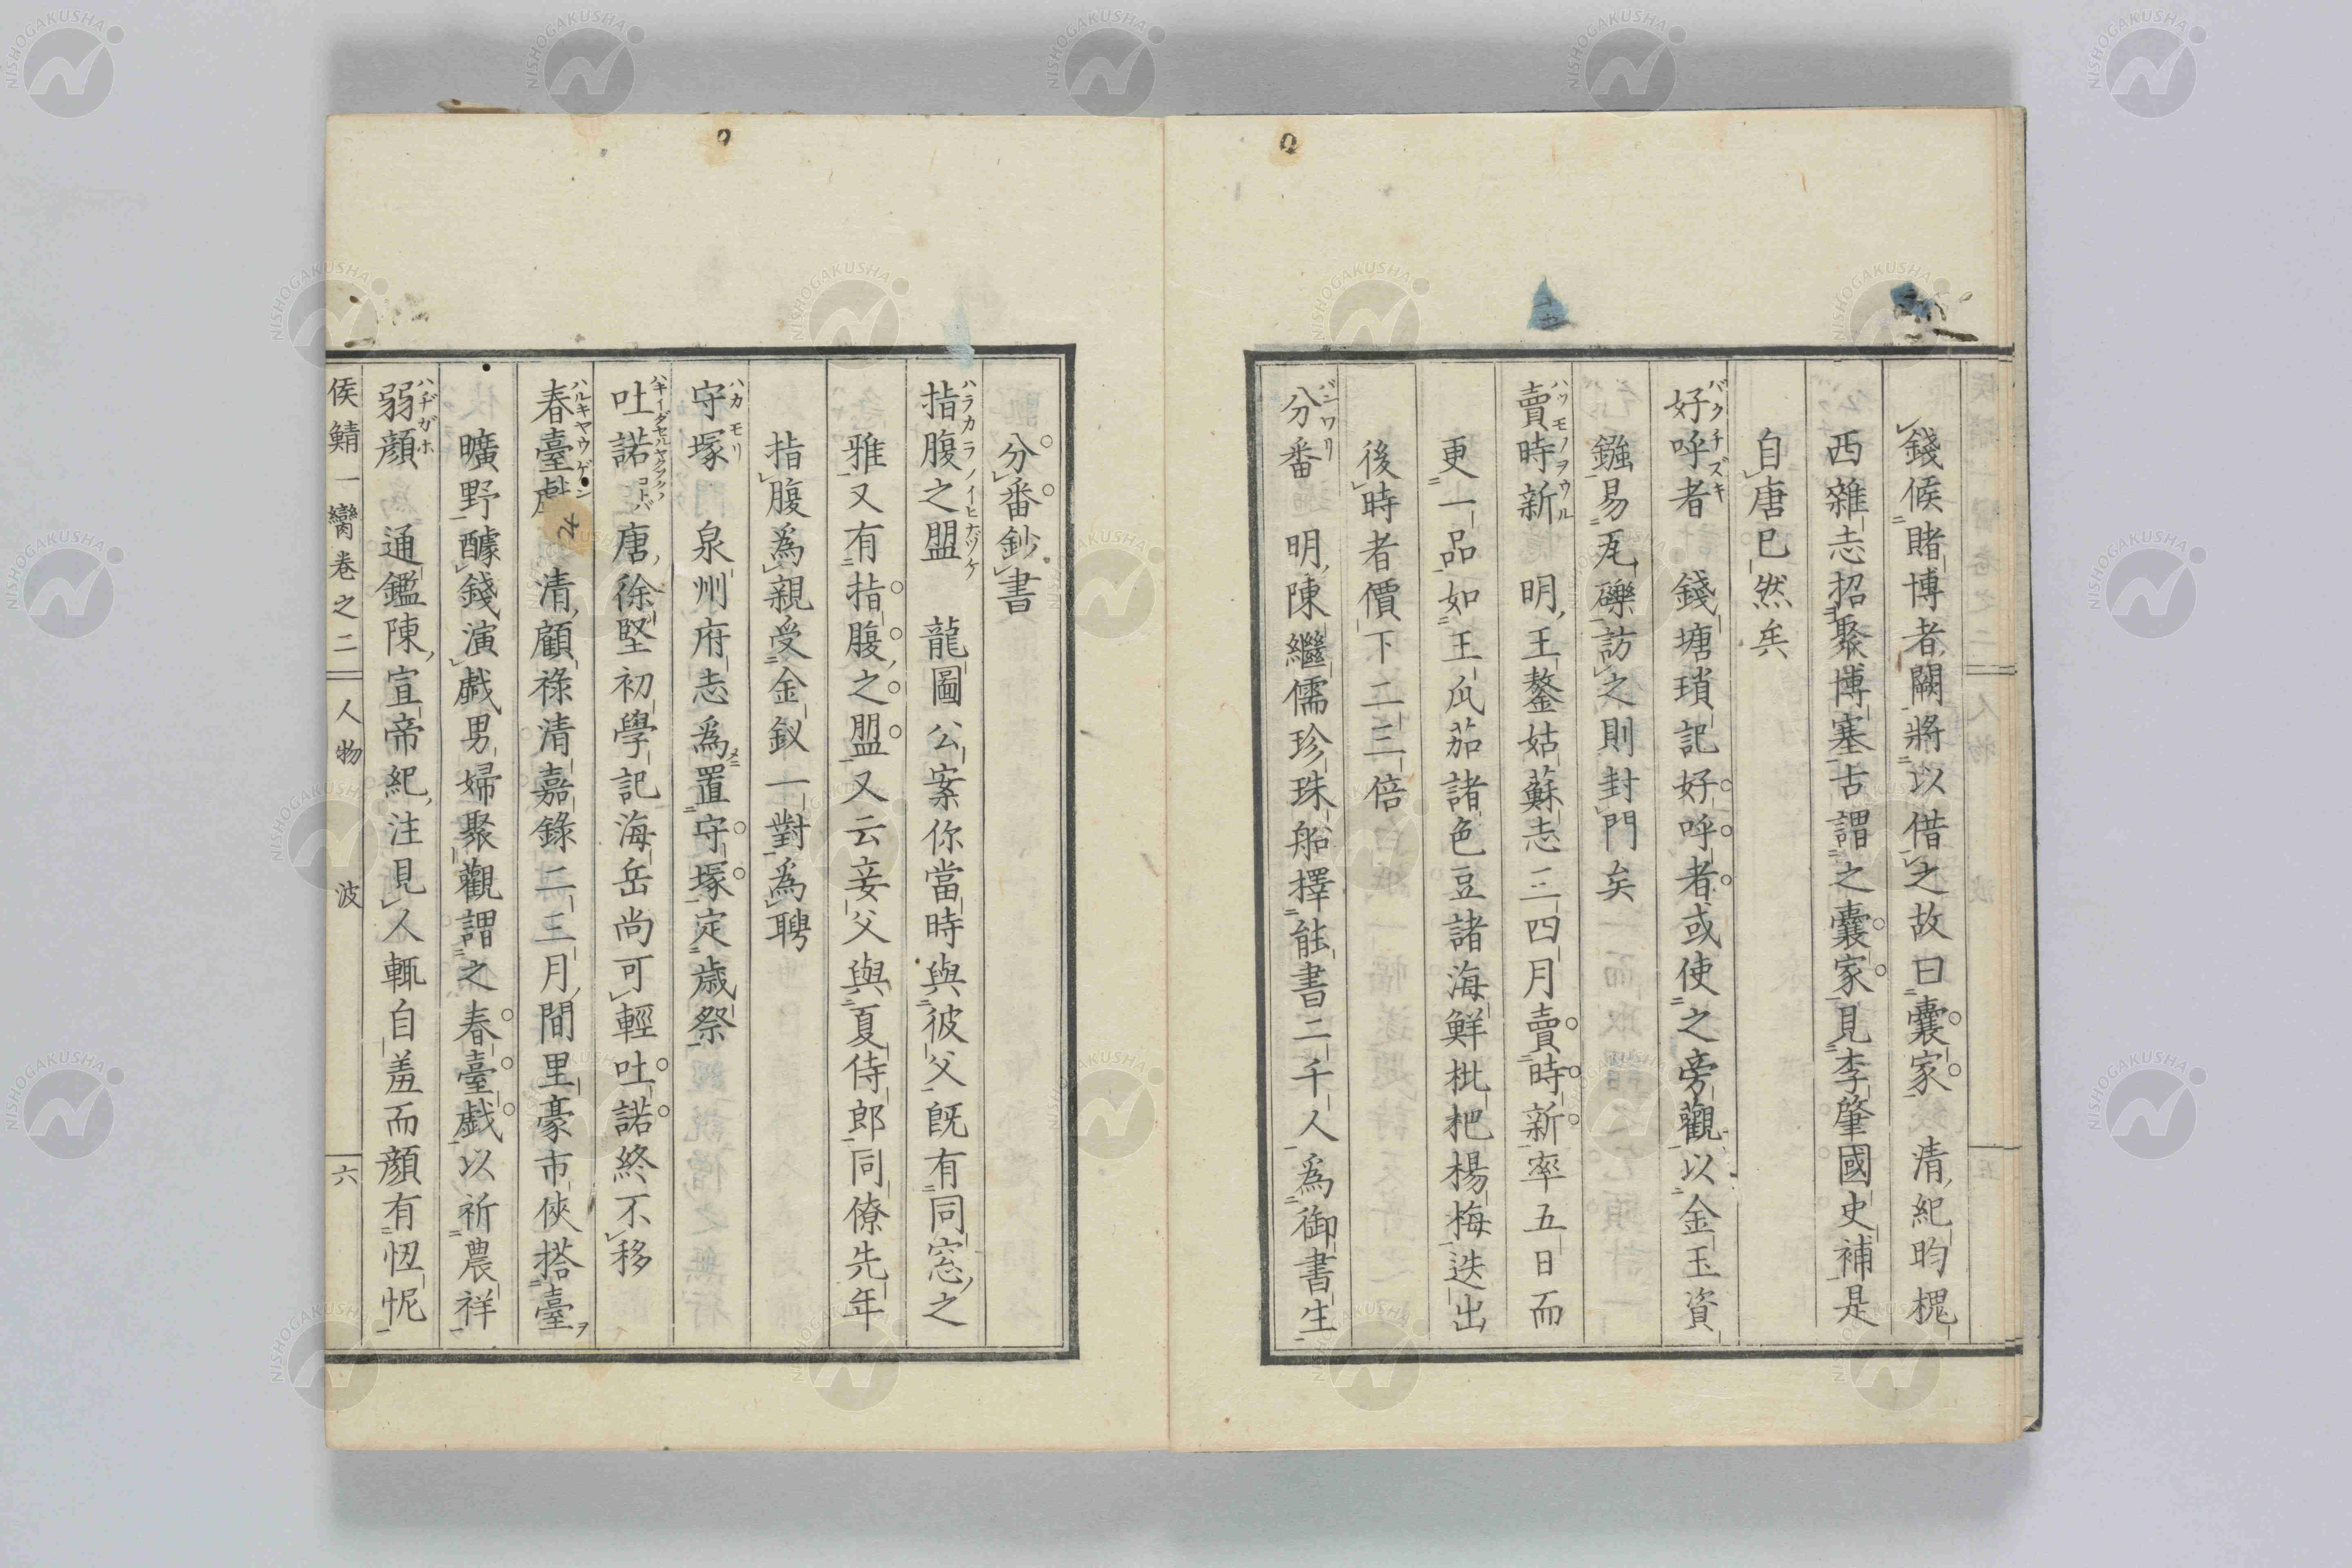 錢候賭博者闕將以借之故曰囊家　清紀昀槐
西雜志招聚博塞古謂之囊家見李肇國史補是
自唐已然矣
好呼者　錢塘瑣記好呼者或使之旁觀以金玉資
鏹易瓦礫訪之則封門矣
賣時新　明王鏊姑蘇志三四月賣時新率五日而
更一品如王瓜茄諸色豆諸海鮮枇杷楊梅迭出
後時者價下二三倍
分番　明陳繼儒珍珠船擇能書二千人爲御書生
分番鈔書
指腹之盟　龍圖公案你當時與彼父既有同窓之
雅又有指腹之盟又云妾父與夏侍郎同僚先年
指腹爲親受金釵一對爲聘
守塚　泉州府志爲置守塚定歲祭
吐諾　唐徐堅初學記海岳尚可輕吐諾終不移
春臺戲　清顧祿清嘉錄二三月間里豪市俠搭臺
曠野醵錢演戲男婦聚觀謂之春臺戲以祈農祥
弱顏　通鑑陳宣帝紀注見人輒自羞而顏有忸怩
侯鯖一臠卷之二　人物　波　六
バクチズキ
ハツモノヲウル
バンワリ
ハラカラノイヒナヅケ
ハカモリ
ハルキヤウゲン
ハヂガホ
NISHOGAKUSHA